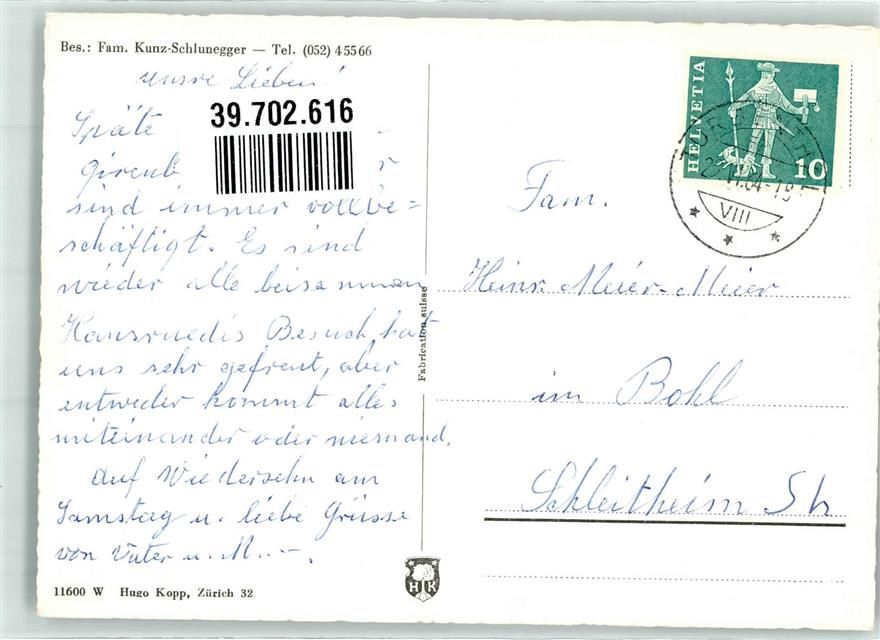 Bes.: Fam. Kunz-Schlunegger — Tel. (052) 45566
unsre Lieben!
39.702.616
Späte
sind immer vollbe=
schäftigt. Es sind
wieder alle beisammen
Hansruedis Besuch hat
uns sehr gefreut, aber
entweder kommt alles
miteinander oder niemand.
Auf Wiedersehn am
Samstag u. liebe Grüsse
von Vater u. M...
11600 W Hugo Kopp, Zürich 32
Fabrication suisse
HK
HELVETIA
10
VIII
Fam.
Heinr. Meier-Meier
im Bohl
Schleitheim Sh